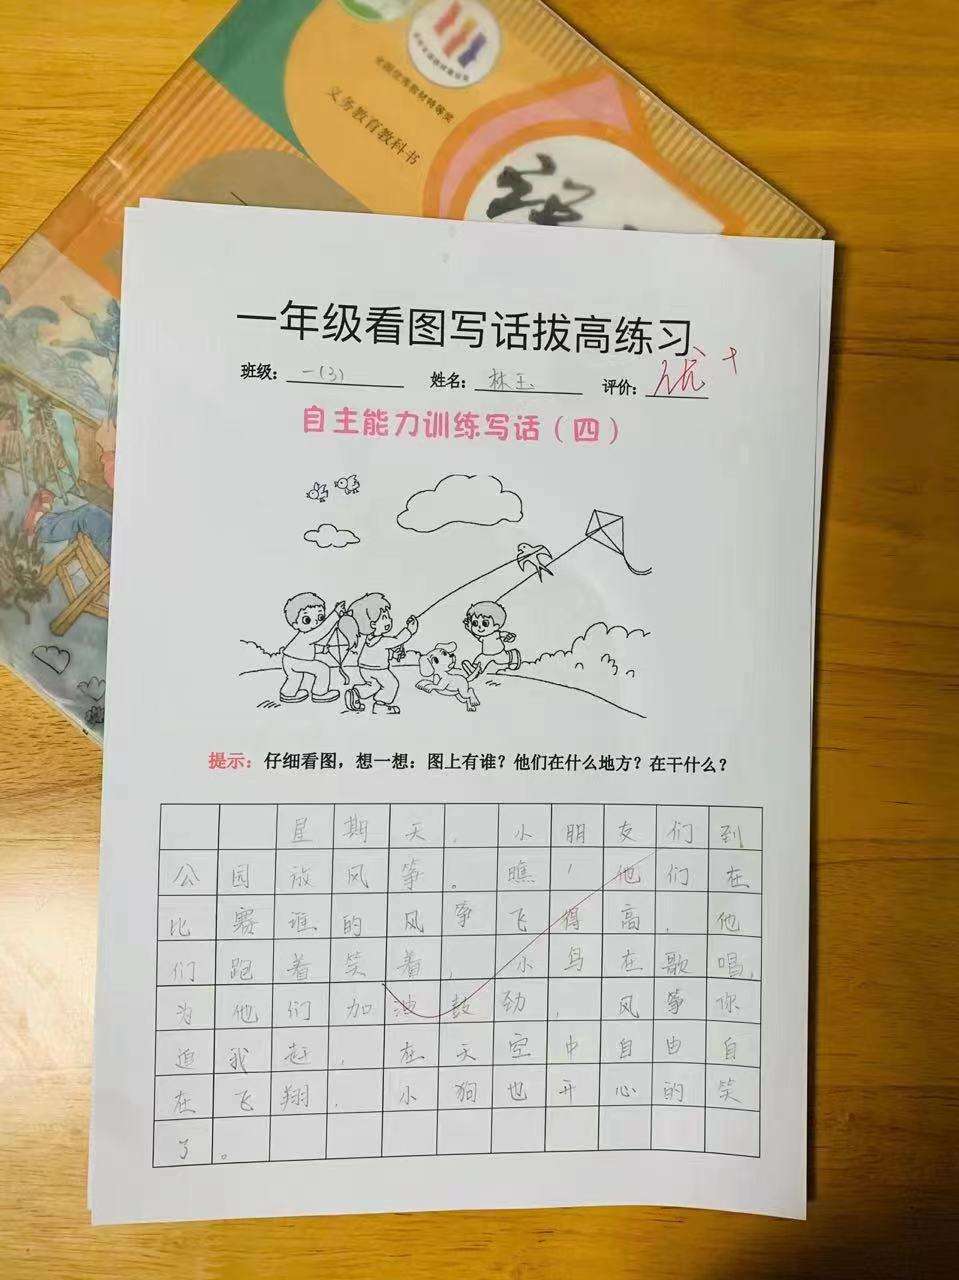 全国优秀教材特等奖
义务教育教科书
一年级看图写话拔高练习
班级：一(3) 姓名：林玉 评价：优+
自主能力训练写话（四）
提示：仔细看图，想一想：图上有谁？他们在什么地方？在干什么？
星期天，小朋友们到
公园放风筝。瞧！他们在
比赛谁的风筝飞得高，他
们跑着笑着，小鸟在歌唱，
为他们加油鼓劲，风筝你
追我赶，在天空中自由自
在飞翔，小狗也开心的笑
了。